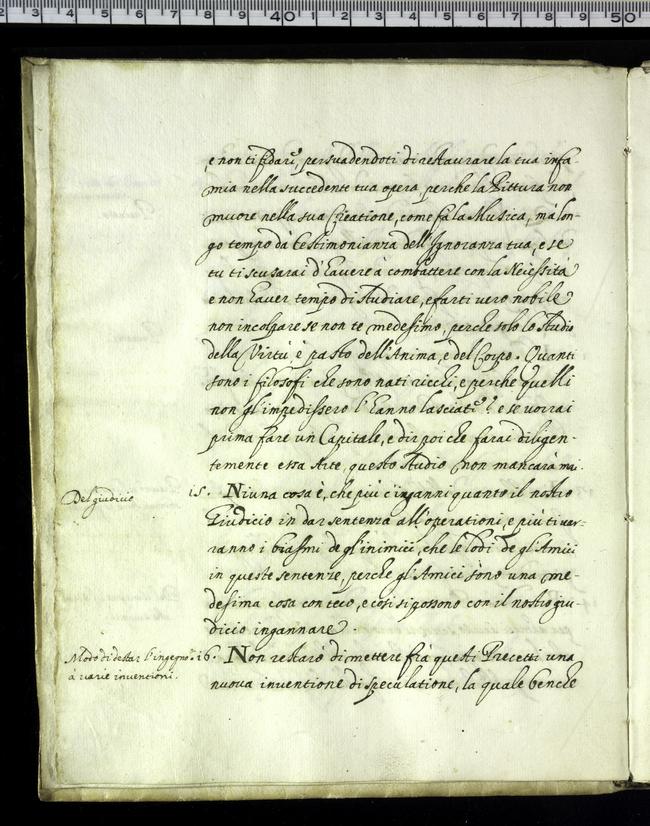 40 50
e non ti fidar, persuadendoti di restaurare la tua infa-
mia nella succedente tua opera, perche la Pittura non
muore nella sua Creatione, come fà la Musica, mà lon-
go tempo dà testimonianza dell'Ignoranza tua, e se
tu ti scusarai d'hauere à combattere con la Necessità
e non hauer tempo di studiare, e farti uero nobile
non incolpare se non te medesimo, perche solo lo studio
della Virtù è pasto dell'Anima, e del Corpo. Quanti
sono i filosofi che sono nati ricchi, e perche quelli
non gl'impedissero l'hanno lasciati? e se uorrai
prima fare un Capitale, e dir poi che farai diligen-
temente essa Arte, questo studio non mancarà mai
Del giudicio 15. Niuna cosa è, che più c'inganni quanto il nostro
Giudicio in dar sentenza all'operationi, e più ti uer-
ranno i biasmi de gl'inimici, che le lodi de gl'Amici
in queste sentenze, perche gl'Amici sono una me-
desima cosa con teco, e così si possono con il nostro giu-
dicio ingannare.
Modo di destar l'ingegno 16. Non restarò di mettere frà questi Precetti una
à uarie inuentioni. nuoua inuentione di speculatione, la quale benche